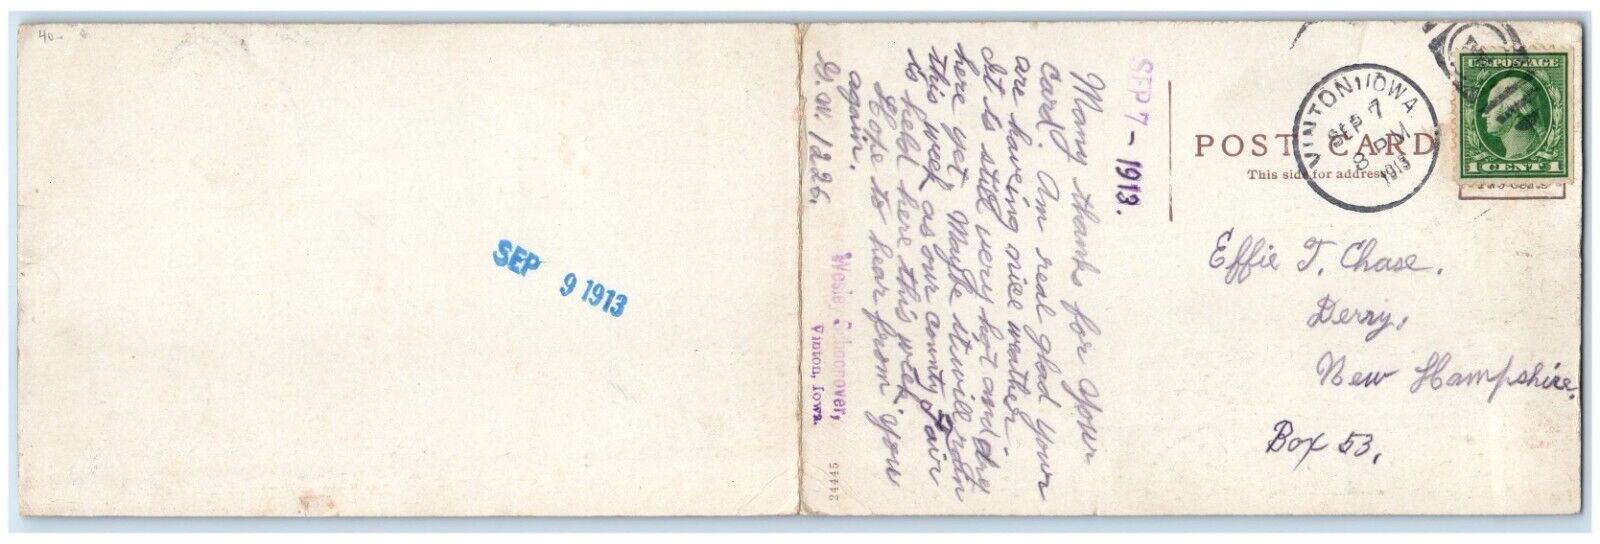 40-
SEP 9 1913
SEP 7 - 1913.
Many thanks for your
card. Am real glad your
are having nice weather.
It is still very hot and dry
here yet. Maybe it will rain
this week as our county Fair
is held here this week.
Hope to hear from you
again.
G.W. 1226.
Wesley Schoonover,
Vinton, Iowa.
24445
POST CARD
This side for address
VINTON, IOWA
SEP 7
8 PM
1913
U.S. POSTAGE
1 CENT 1
Effie T. Chase.
Derry,
New Hampshire,
Box 53,